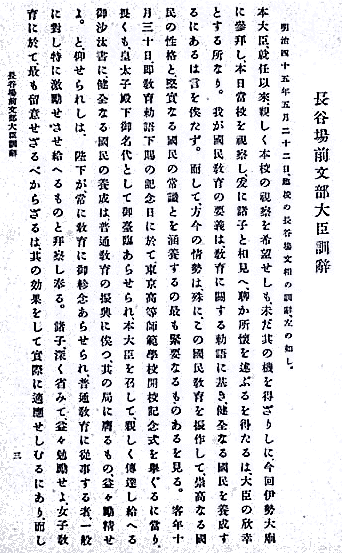 長谷場前文部大臣訓辭
明治四十五年五月二十二日臨校の長谷場文相の訓辭、左の如し。
本大臣、就任以來、親しく本校の視察を希望せしも、未だ其の機を得ざりしに、今回伊勢大廟
に參拜し、本日當校を視察し、爰に諸子と相見へ、聊か所懷を述ぶるを得たるは、大臣の欣幸
とする所なり。我が國民教育の要義は、教育に關する勅語に基き、健全なる國民を養成す
るにあるは言を俟たず。而して方今の情勢は、殊に、この國民教育を振作して、崇高なる國
民の性格と、堅實なる國民の常識とを涵養するの最も緊要なるものあるを見る。客年十
月三十日、卽教育勅語下賜の記念日に於て、東京高等師範學校開校記念式を擧ぐるに當り、
畏くも、皇太子殿下御名代として御臺臨あらせられ、本大臣を召して、親しく傳達し給へる
御沙汰書に、健全なる國民の養成は、普通教育の振興に俟つ、其の局に膺るもの、益々勵精せ
よ。と仰せられしは、陛下が、常に教育に御軫念あらせられ、普通教育に從事する者一般
に對し、特に激勵せさせ給へるものと拜察し奉る。諸子、深く省みて、益々勉勵せよ。女子教
育に於て最も留意せざるべからざるは、其の効果をして實際に適應せしむるにあり。而し
長谷場前文部大臣訓辭
三